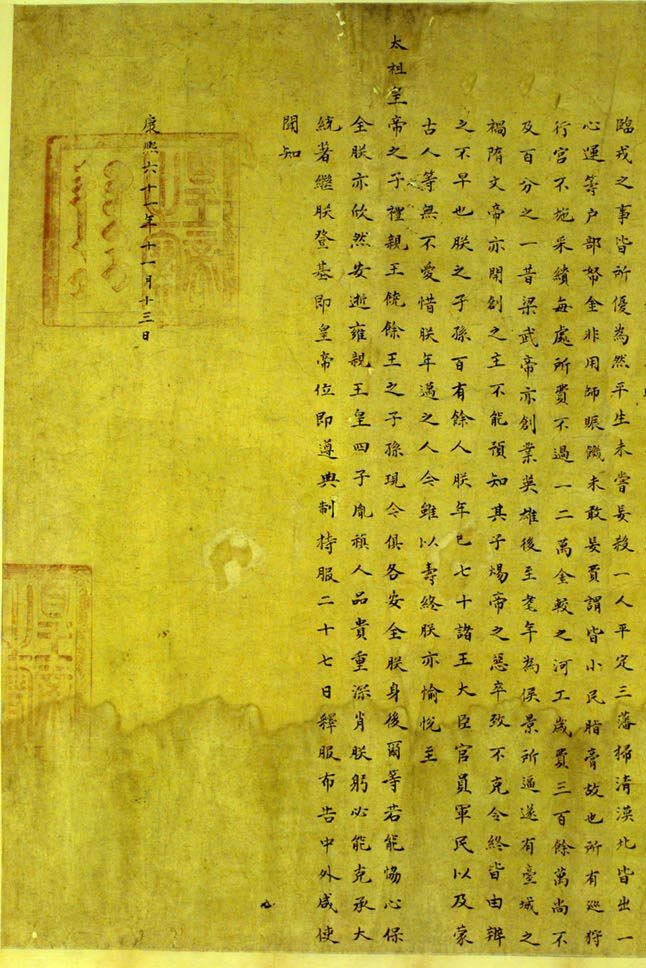 臨戎之事皆所優為然平生未嘗妄殺一人平定三藩掃清漠北皆出一
心運等户部帑金非用師賑饑未敢妄費謂皆小民脂膏故也所有巡狩
行宮不施采繢每處所費不過一二萬金較之河工歲費三百餘萬尚不
及百分之一昔梁武帝亦創業英雄後至耄年為侯景所逼遂有臺城之
禍隋文帝亦開創之主不能預知其子煬帝之惡卒致不克令終皆由辨
之不早也朕之子孫百有餘人朕年已七十諸王大臣官員軍民以及蒙
古人等無不愛惜朕年邁之人今雖以壽終朕亦愉悅至
太祖皇帝之子禮親王饒餘王之子孫現今俱各安全朕身後爾等若能恊心保
全朕亦欣然安逝雍親王皇四子胤禛人品貴重深肖朕躬必能克承大
統著繼朕登基即皇帝位即遵典制持服二十七日釋服布告中外咸使
聞知
康熙六十一年十一月十三日